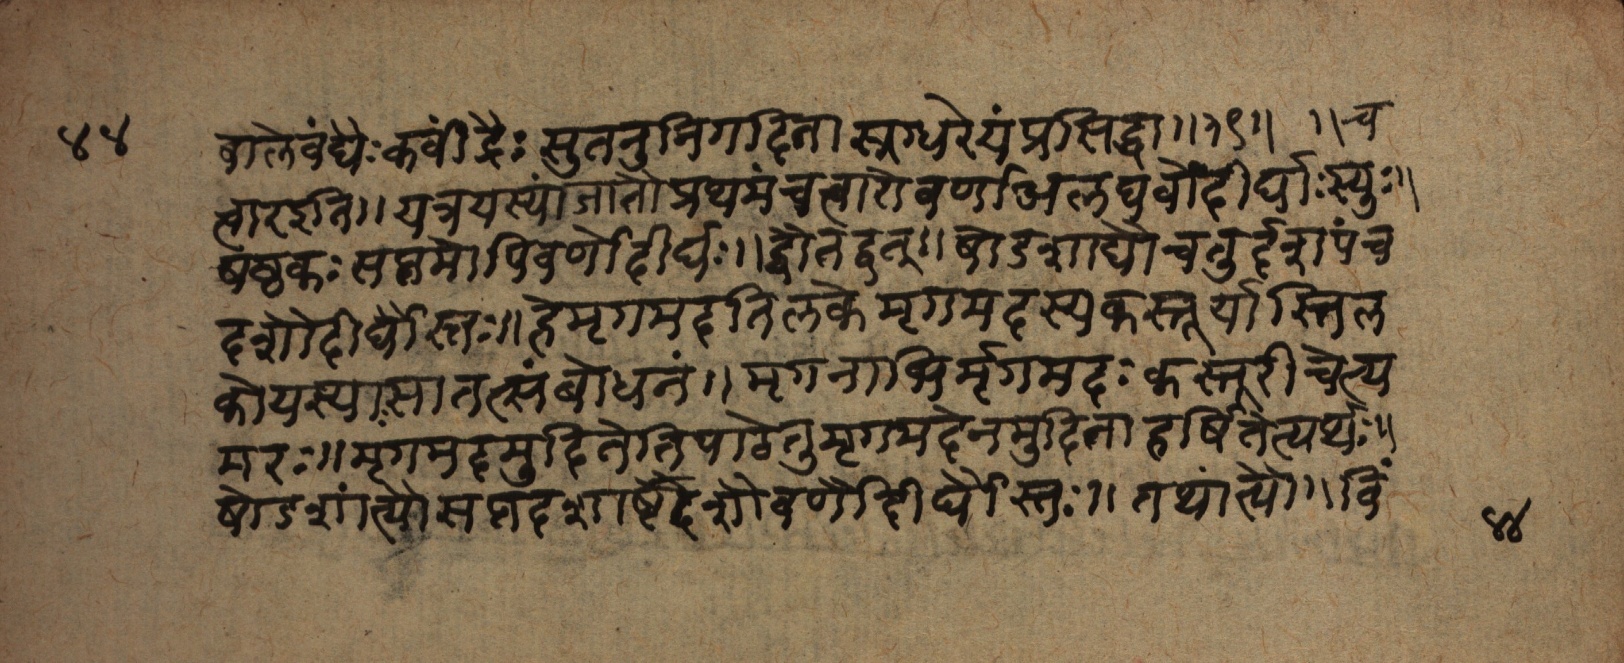 ४४
बाले वंद्यैः कवींद्रैः सुतनु निगदिता स्रग्धरेयं प्रसिद्धा ॥३९॥ ॥ च
त्वार इति ॥ यत्र यस्यां जातौ प्रथमं चत्वारो वर्णा अलघवो दीर्घाः स्युः ॥
षष्ठकः सप्तमोपि वर्णो दीर्घः ॥ द्वौ तद्वत् ॥ षोडशाद्यौ चतुर्दशपंच
दशौ दीर्घौ स्तः ॥ हे मृगमदतिलके मृगमदस्य कस्तूर्यास्तिल
को यस्याः सा तत्संबोधनं ॥ मृगनाभिर्मृगमदः कस्तूरी चेत्य
मरः ॥ मृगमदमुदितेति पाठे तु मृगमदेन मुदिता हर्षितेत्यर्थः ॥
षोडशांत्यौ सप्तदशाष्टादशौ वर्णौ दीर्घौ स्तः ॥ तथांत्यौ ॥ विं
४४